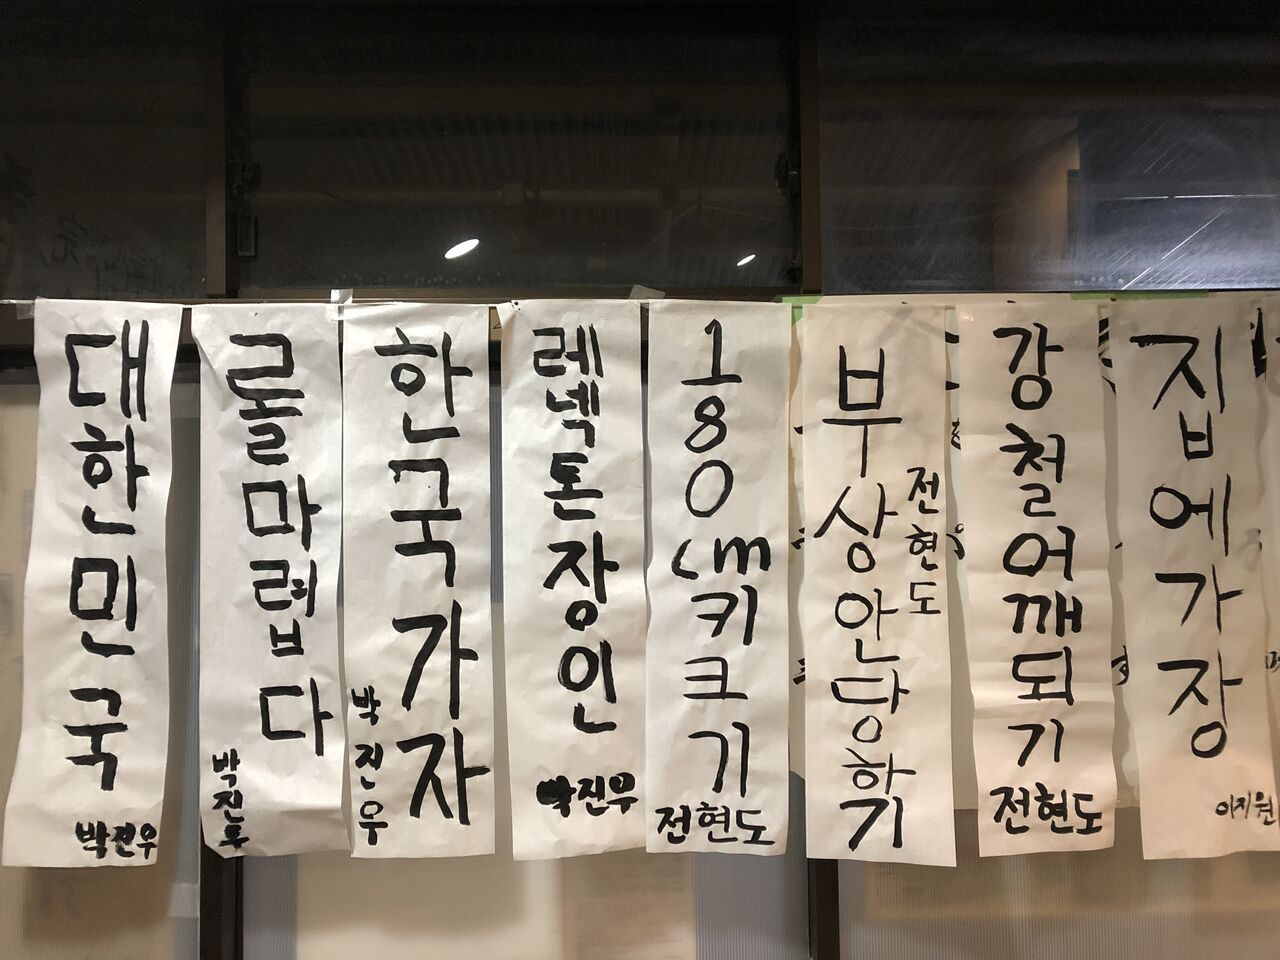 대한민국
박진우
롤마렵다
박진우
한국가자
박진우
레넥톤장인
박진우
180cm키크기
전현도
부상안당하기
전현도
강철어깨되기
전현도
집에가장
이지원